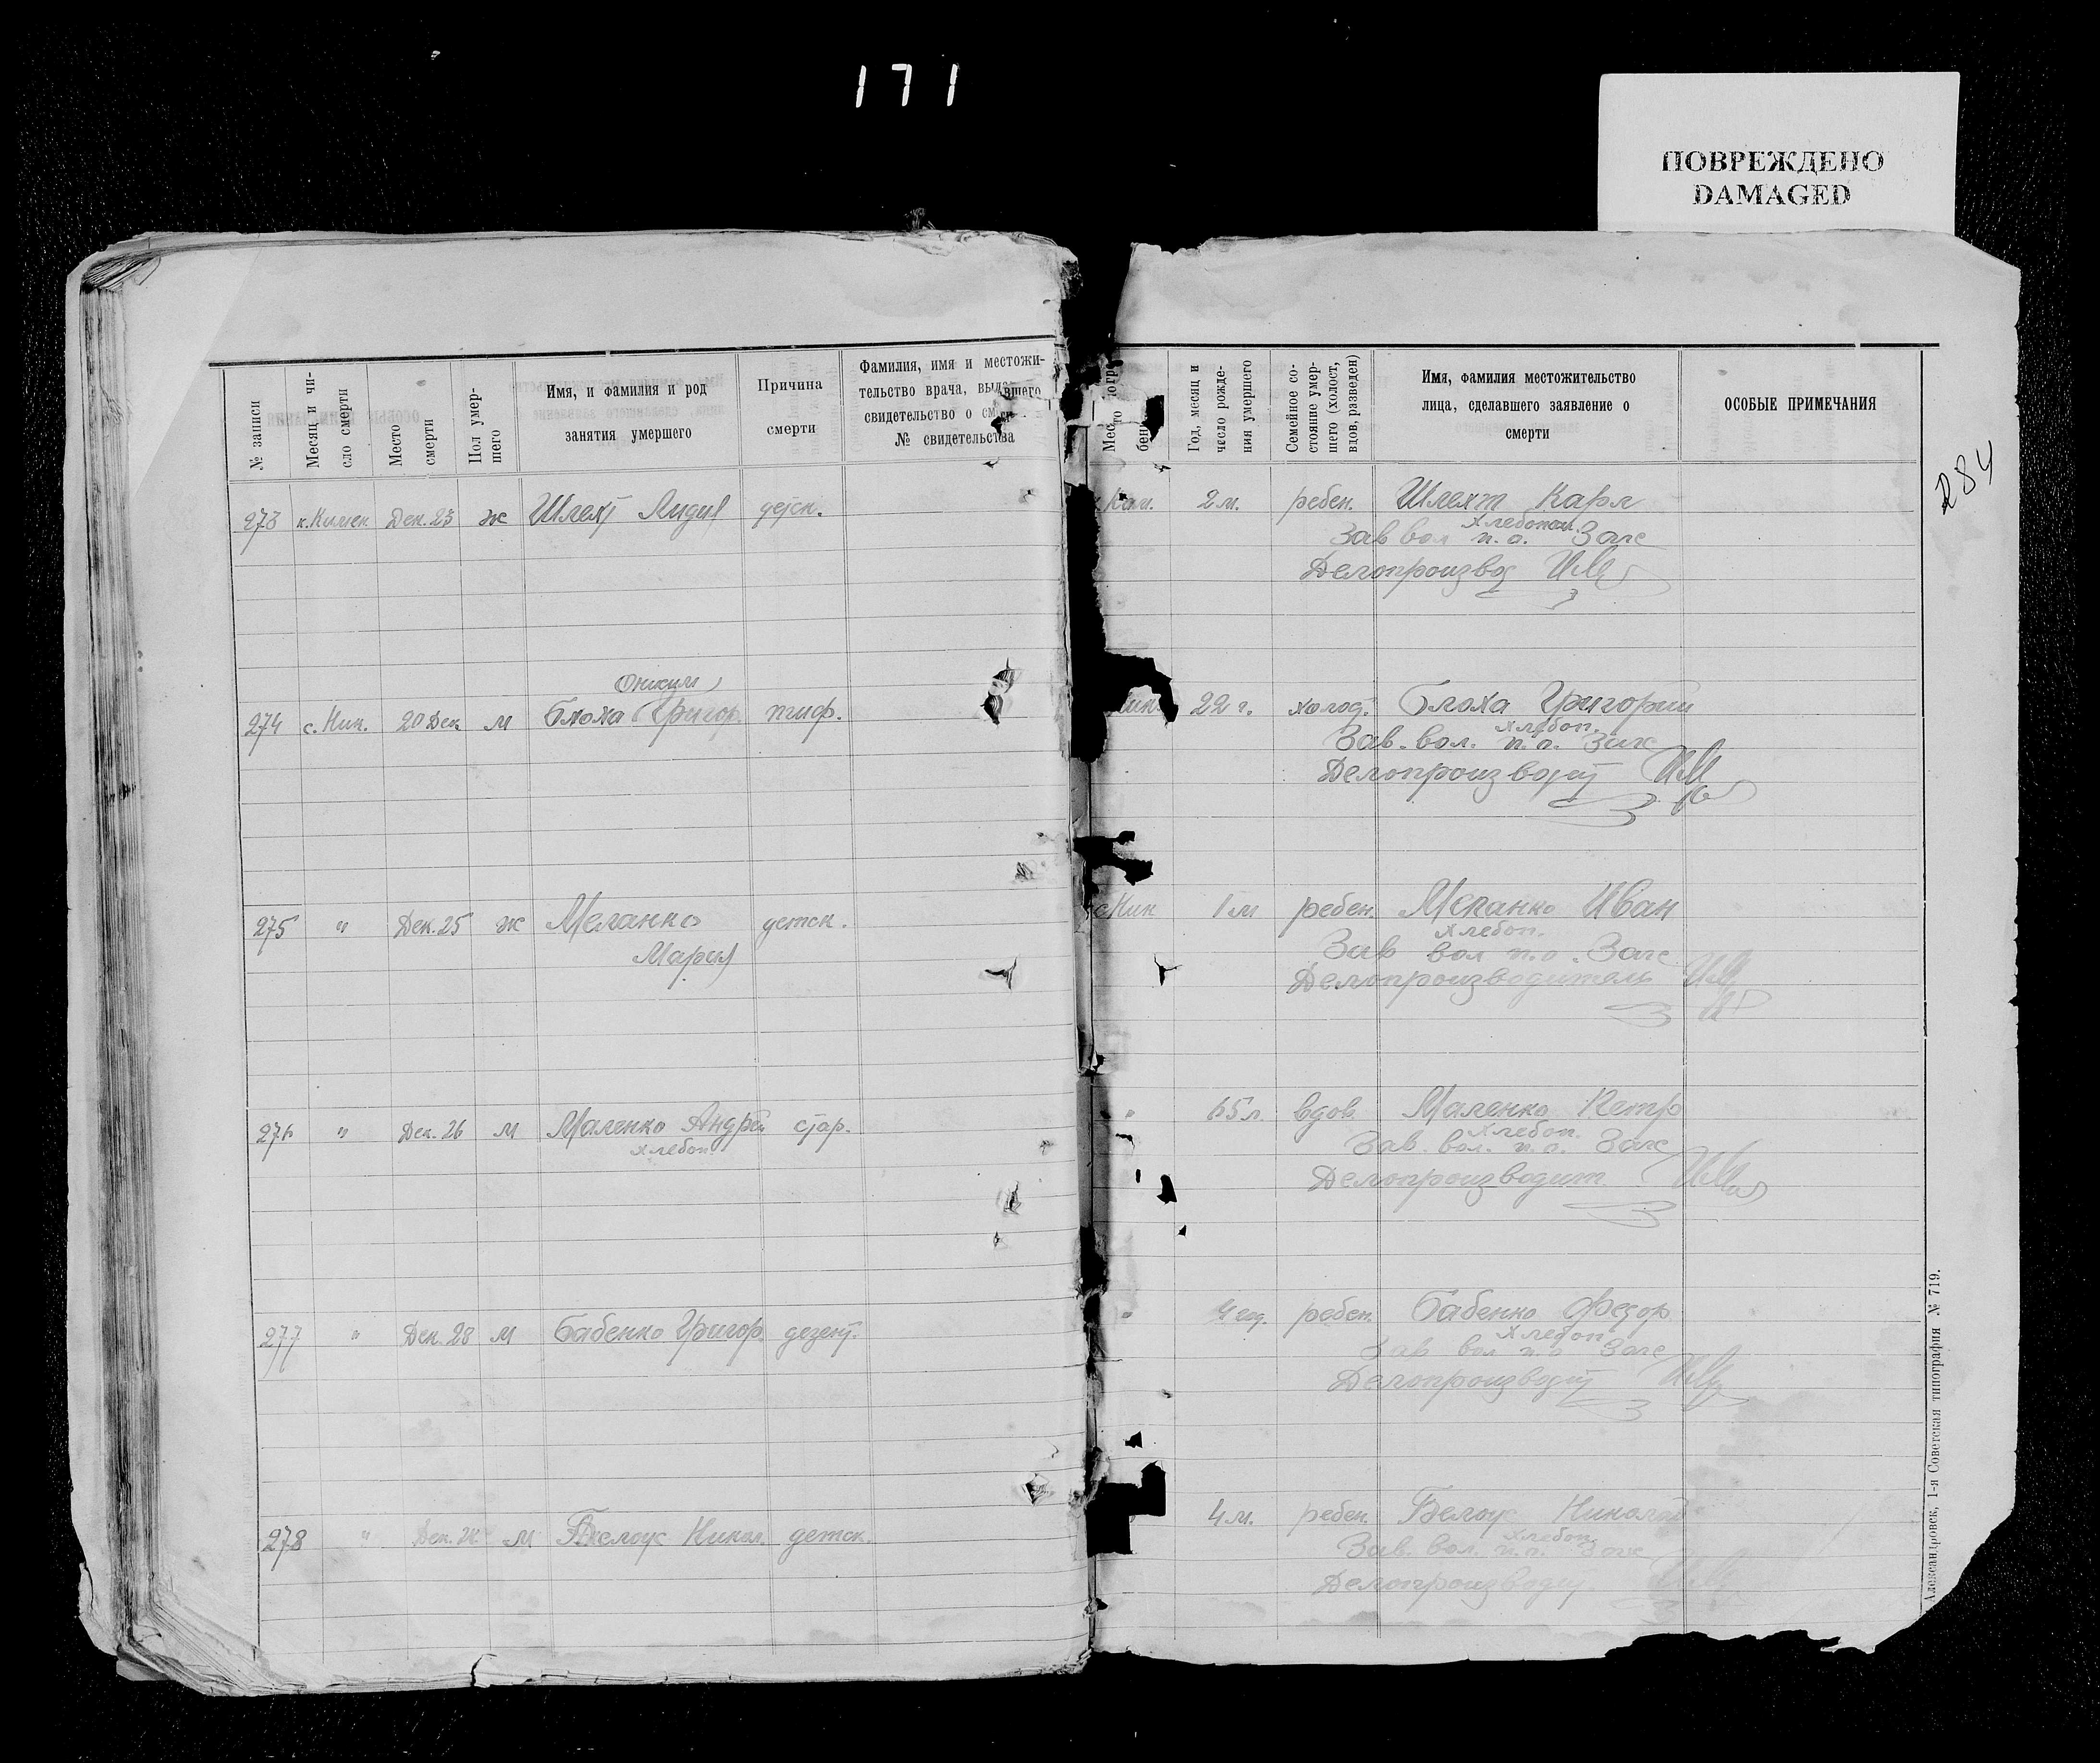 171
ПОВРЕЖДЕНО
DAMAGED
284
№ записи
Месяц и чи-
сло смерти
Место
смерти
Пол умер-
шего
Имя, и фамилия и род
занятия умершего
Причина
смерти
Фамилия, имя и местожи-
тельство врача,
свидетельство о
№ свидетельства
Год, месяц и
число рожде-
ния умершего
Семейное со-
стояние умер-
шего (холост,
вдов, разведен)
Имя, фамилия местожительство
лица, сделавшего заявление о
смерти
ОСОБЫЕ ПРИМЕЧАНИЯ
273 Дек. 23 ж Шлехт Лидия детск. 2 м. ребен. Шлехт Карл
Хлебопаш.
Зав вол п.о. Загс
Делопроизвод
274 с. Ник. 20 Дек м Блоха Григор. тиф. 22 г. холос. Блоха Григорий
хлебоп.
Зав. вол. п.о. Загс
Делопроизводит
275 " Дек. 25 ж Меланко детск. с Ник 1 м ребен. Меланко Иван
Мария
Хлебоп.
Зав вол п.о. Загс
Делопроизводитель
276 " Дек. 26 м Маленко Андрей стар. " 65 л. вдов. Маленко Петр
хлебоп
Хлебоп.
Зав. вол. п.о. Загс
Делопроизводит
277 " Дек. 28 м Бабенко Григор. дезент. " ребен. Бабенко Федор
Хлебоп
Зав вол п.о Загс
Делопроизводит
278 " м Белоус Никол. детск. 4 м. ребен. Белоус Николай
Хлебоп.
Зав. вол. п.о. Загс
Делопроизводит
Александровск, 1-я Советская типография № 719.